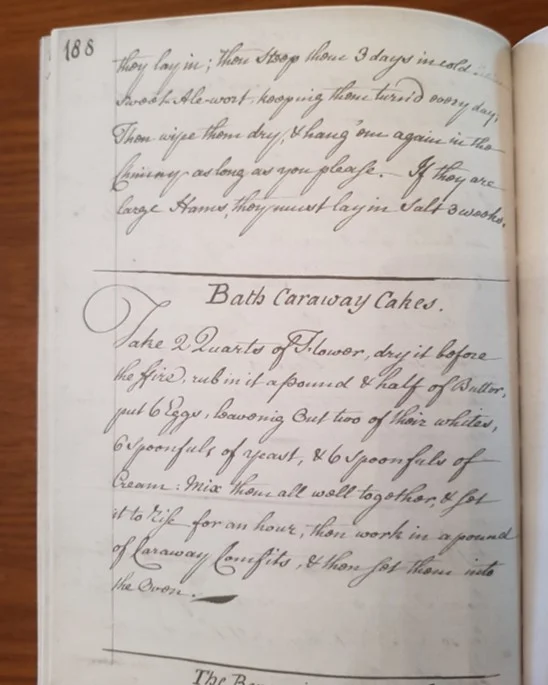 188
they lay in; then Steep them 3 days in cold
sweet Ale-wort, keeping them turn'd every day;
Then wipe them dry, & hang 'em again in the
Chimny as long as you please. If they are
large Hams, they must lay in Salt 3 weeks.
Bath Caraway Cakes.
Take 2 Quarts of Flower, dry it before
the ffire, rub in it a pound & half of Butter,
put 6 Eggs, leaveing Out two of their whites,
6 spoonfuls of yeast, & 6 spoonfuls of
Cream: Mix them all well together, & set
it to rise for an hour, then work in a pound
of Caraway Comfits, & then set them into
the Oven.
The